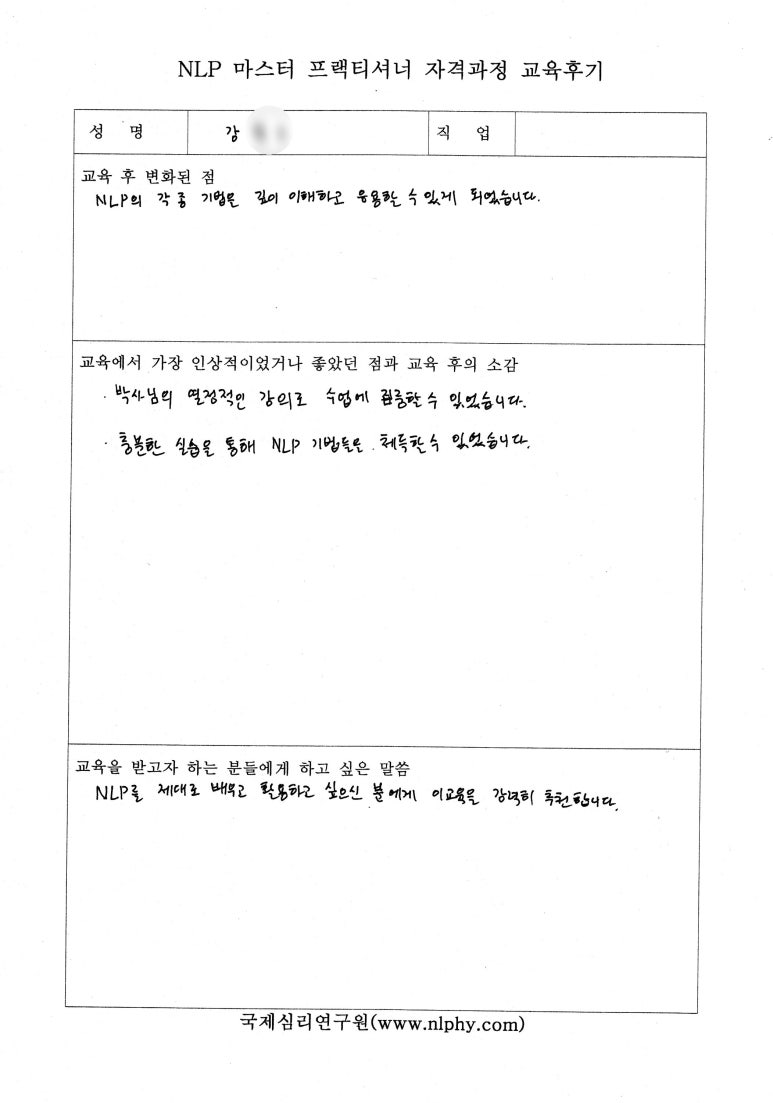 NLP 마스터 프랙티셔너 자격과정 교육후기
성 명 강 직 업
교육 후 변화된 점
NLP의 각종 기법을 깊이 이해하고 응용할 수 있게 되었습니다.
교육에서 가장 인상적이었거나 좋았던 점과 교육 후의 소감
· 박사님의 열정적인 강의로 수업에 집중할 수 있었습니다.
· 충분한 실습을 통해 NLP 기법들을 체득할 수 있었습니다.
교육을 받고자 하는 분들에게 하고 싶은 말씀
NLP를 제대로 배우고 활용하고 싶으신 분에게 이교육을 강력히 추천합니다.
국제심리연구원(www.nlphy.com)